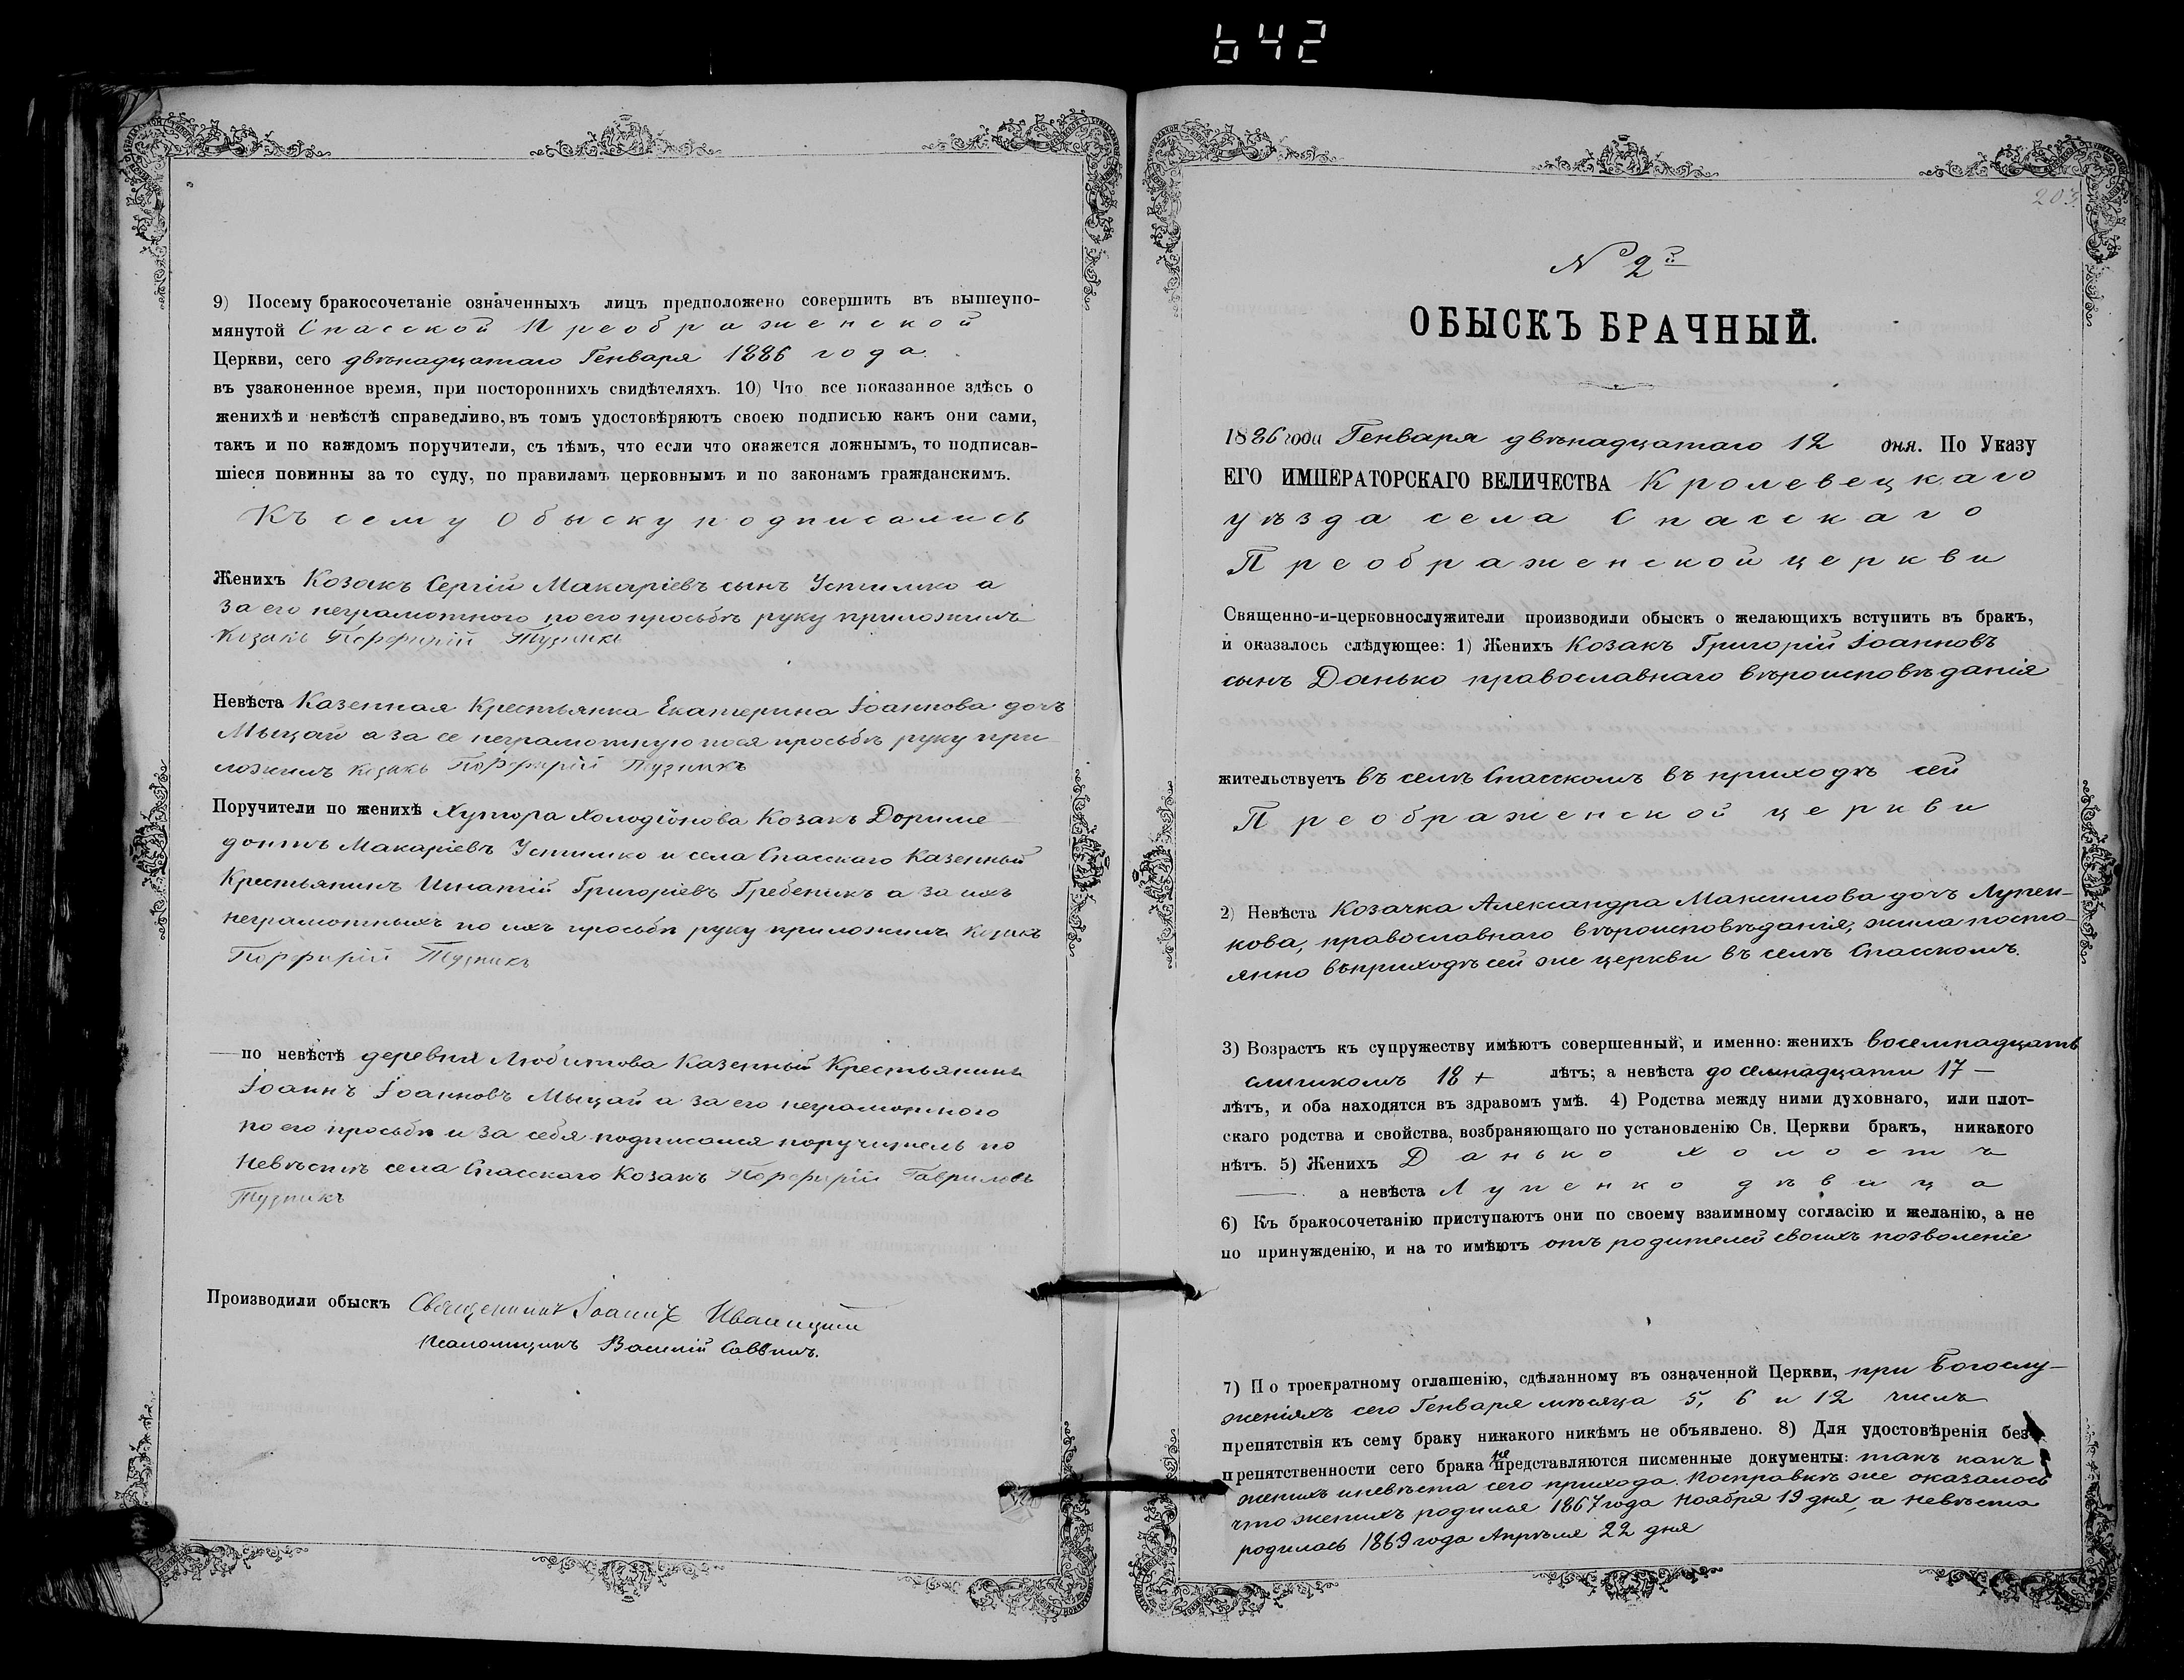 642
9) Посему бракосочетаніе означенныхъ лицъ предположено совершить въ вышеупо-
мянутой Спасской Преображенской
Церкви, сего двѣнадцатаго Генваря 1886 года.
въ узаконенное время, при постороннихъ свидѣтеляхъ. 10) Что все показанное здѣсь о
женихѣ и невѣстѣ справедливо, въ томъ удостовѣряютъ своею подписью какъ они сами,
такъ и по каждомъ поручители, съ тѣмъ, что если что окажется ложнымъ, то подписав-
шіеся повинны за то суду, по правиламъ церковнымъ и по законамъ гражданскимъ.
Къ сему Обыску подписались
Женихъ Козакъ Сергій Макаріевъ сынъ Устимко а
за его неграмотного по его просьбѣ руку приложилъ
Козакъ Порфирій Тузникъ
Невѣста Казенная Крестьянка Екатерина Іоаннова дочь
Мыцай а за ее неграмотную по ея просьбѣ руку при
ложилъ козакъ Порфирій Тузникъ
Поручители по женихѣ Хутора Холодіонова Козакъ Дориме-
донтъ Макаріевъ Устимко и села Спасскаго Казенный
Крестьянинъ Игнатій Григоріевъ Гребеникъ а за ихъ
неграмотныхъ по ихъ просьбѣ руку приложилъ козакъ
Порфирій Тузникъ
— по невѣстѣ деревни Любитова Казенный Крестьянинъ
Іоаннъ Іоанновъ Мыцай а за его неграмотного
по его просьбѣ и за себя подписался поручитель по
Невѣстѣ села Спасскаго Козакъ Порфирій Гавриловъ
Тузникъ
Производили обыскъ Священникъ Іоаннъ Иваницкій
Псаломщикъ Василій Саввичъ.
203
№ 2й
ОБЫСКЪ БРАЧНЫЙ.
1886 года Генваря двѣнадцатаго 12 дня. По Указу
ЕГО ИМПЕРАТОРСКАГО ВЕЛИЧЕСТВА Кролевецкаго
уѣзда села Спасскаго
Преображенской церкви
Священно-и-церковнослужители производили обыскъ о желающихъ вступить въ бракъ,
и оказалось слѣдующее: 1) Женихъ Козакъ Григорій Іоанновъ
сынъ Данько православнаго вѣроисповѣданія
жительствуетъ въ селѣ Спасскомъ въ приходѣ сей
Преображенской церкви
2) Невѣста Козачка Александра Максимова дочь Лупен-
кова, православнаго вѣроисповѣданія, жила посто-
янно въ приходѣ сей же церкви въ селѣ Спасскомъ.
3) Возрастъ къ супружеству имѣютъ совершенный, и именно: женихъ восемнадцать
слишкомъ 18 + лѣтъ; а невѣста до семнадцати 17 —
лѣтъ, и оба находятся въ здравомъ умѣ. 4) Родства между ними духовнаго, или плот-
скаго родства и свойства, возбраняющаго по установленію Св. Церкви бракъ, никакого
нѣтъ. 5) Женихъ Данько холостъ
— а невѣста Лупенко дѣвица
6) Къ бракосочетанію приступаютъ они по своему взаимному согласію и желанію, а не
по принужденію, и на то имѣютъ отъ родителей своихъ позволеніе
7) По троекратному оглашенію, сдѣланному въ означенной Церкви, при Богослу-
женіяхъ сего Генваря мѣсяца 5, 6 и 12 числъ
препятствія къ сему браку никакого никѣмъ не объявлено. 8) Для удостовѣренія без-
препятственности сего брака не представляются писменные документы: такъ какъ
женихъ и невѣста сего прихода. По справкѣ же оказалось
что женихъ родился 1867 года Ноября 19 дня, а невѣста
родилась 1869 года Апрѣля 22 дня